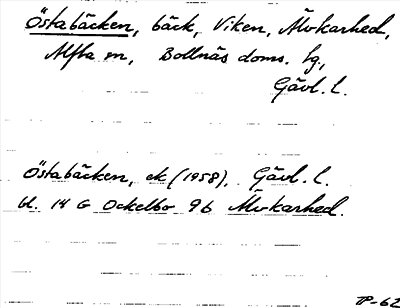 Östabäcken, bäck, Viken, Älvkarhed,
Alfta sn, Bollnäs doms. hg.,
Gävl. l.
Östabäcken, ek (1958), Gävl. l.
bl. 14 G Ockelbo 9b Älvkarhed.
TP-62